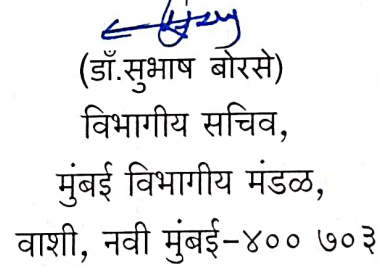 (डॉ.सुभाष बोरसे)
विभागीय सचिव,
मुंबई विभागीय मंडळ,
वाशी, नवी मुंबई-४०० ७०३